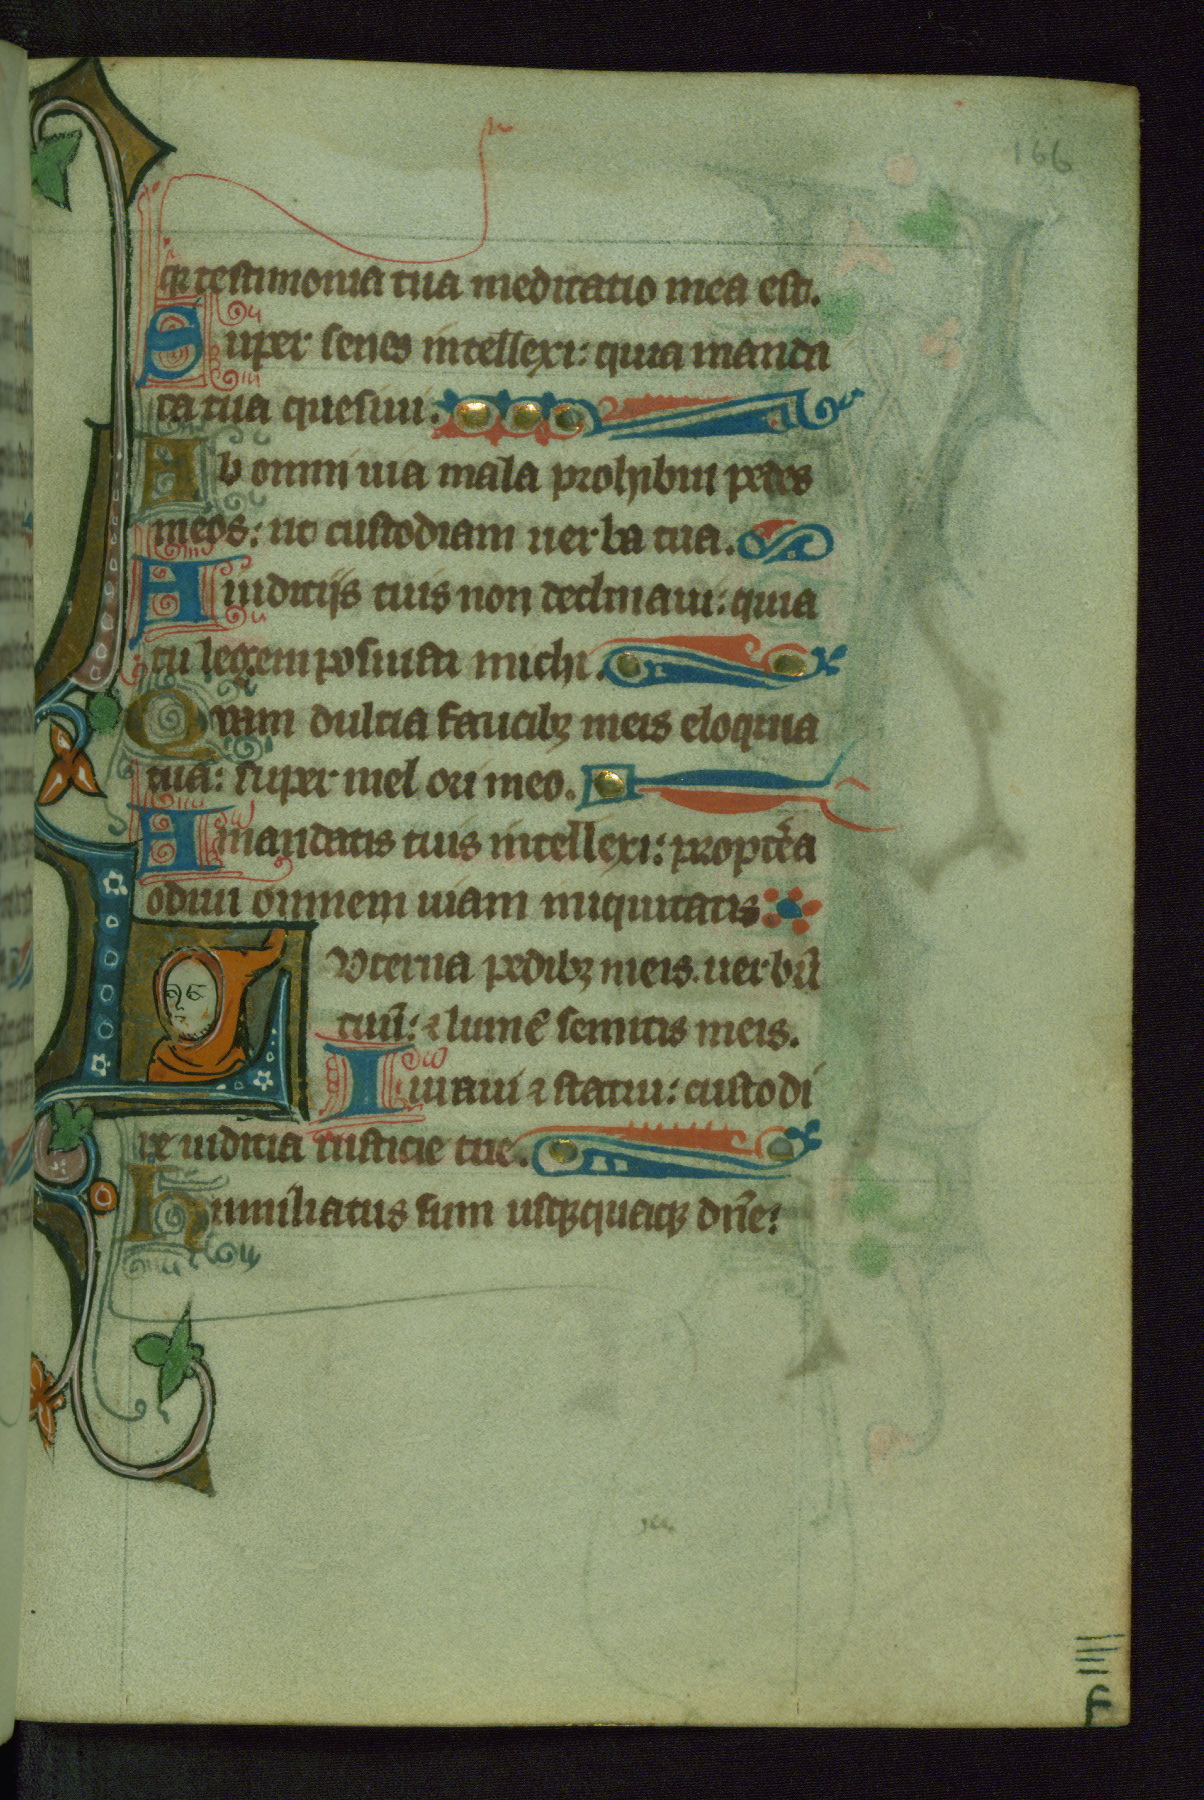 166
qr testimonia tua meditatio mea est.
Super senes intellexi: quia manda
ta tua quesiui.
Ab omni uia mala prohibui pedes
meos: ut custodiam uerba tua.
A iudiciis tuis non declinaui: quia
tu legem posuisti michi.
Quam dulcia faucibꝫ meis eloquia
tua: super mel ori meo.
A mandatis tuis intellexi: propt̾ea
odiui omnem uiam iniquitatis
Lucerna pedibꝫ meis uerbū
tuū: ⁊ lumē semitis meis.
Iuraui ⁊ statui: custodi
re iudicia iusticie tue.
Humiliatus sum usqꝫquaqꝫ dn̄e: